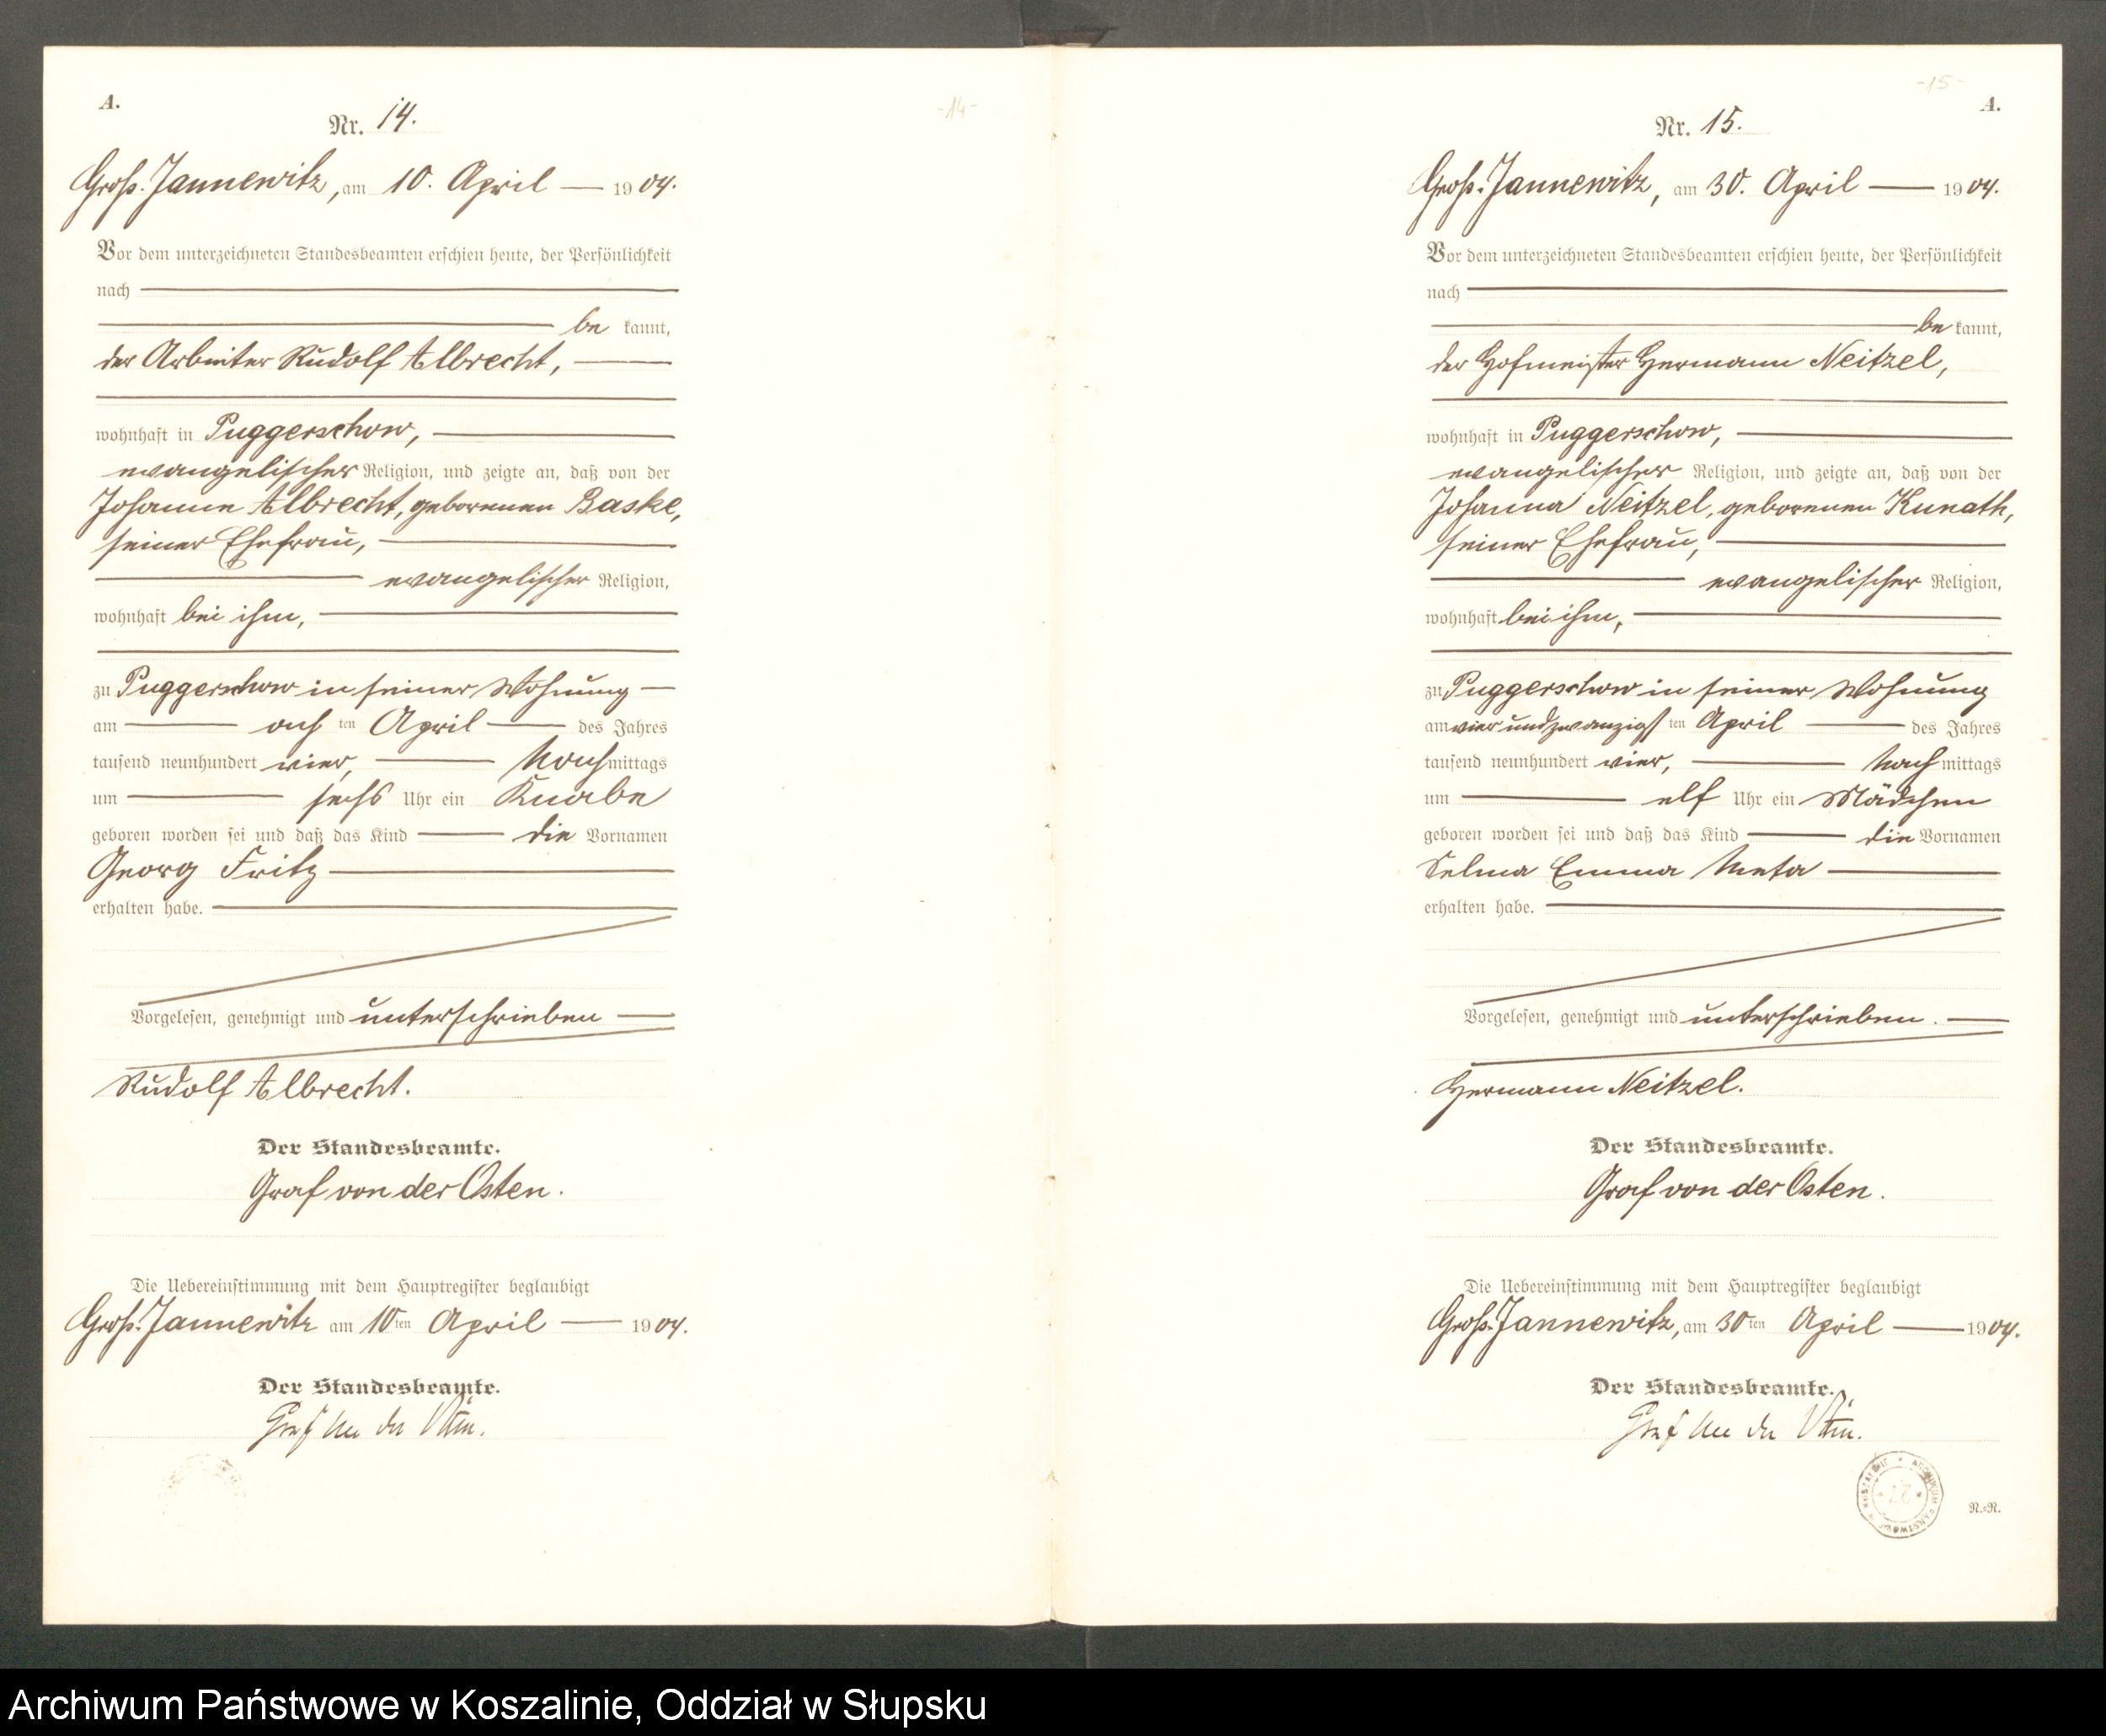 A.
-14-
Nr. 14.
Groß-Jannewitz, am 10. April 1904.
Vor dem unterzeichneten Standesbeamten erschien heute, der Persönlichkeit
nach
be kannt,
der Arbeiter Rudolf Albrecht,
wohnhaft in Puggerschow,
evangelischer Religion, und zeigte an, daß von der
Johanne Albrecht, geborenen Baske,
seiner Ehefrau,
evangelischer Religion,
wohnhaft bei ihm,
zu Puggerschow in seiner Wohnung
am ach ten April des Jahres
tausend neunhundert vier, Nach mittags
um sechs Uhr ein Knabe
geboren worden sei und daß das Kind die Vornamen
Georg Fritz
erhalten habe.
Vorgelesen, genehmigt und unterschrieben
Rudolf Albrecht.
Der Standesbeamte.
Graf von der Osten.
Die Uebereinstimmung mit dem Hauptregister beglaubigt
Groß-Jannewitz am 10 ten April 1904.
Der Standesbeamte.
Graf von der Osten.
-15-
A.
Nr. 15.
Groß-Jannewitz, am 30. April 1904.
Vor dem unterzeichneten Standesbeamten erschien heute, der Persönlichkeit
nach
be kannt,
der Hofmeister Hermann Neitzel,
wohnhaft in Puggerschow,
evangelischer Religion, und zeigte an, daß von der
Johanna Neitzel, geborenen Kunath,
seiner Ehefrau,
evangelischer Religion,
wohnhaft bei ihm,
zu Puggerschow in seiner Wohnung
am vierundzwanzigs ten April des Jahres
tausend neunhundert vier, Nach mittags
um elf Uhr ein Mädchen
geboren worden sei und daß das Kind die Vornamen
Selma Emma Meta
erhalten habe.
Vorgelesen, genehmigt und unterschrieben.
Hermann Neitzel.
Der Standesbeamte.
Graf von der Osten.
Die Uebereinstimmung mit dem Hauptregister beglaubigt
Groß-Jannewitz, am 30 ten April 1904.
Der Standesbeamte.
Graf von der Osten.
N.=N.
Archiwum Państwowe w Koszalinie, Oddział w Słupsku